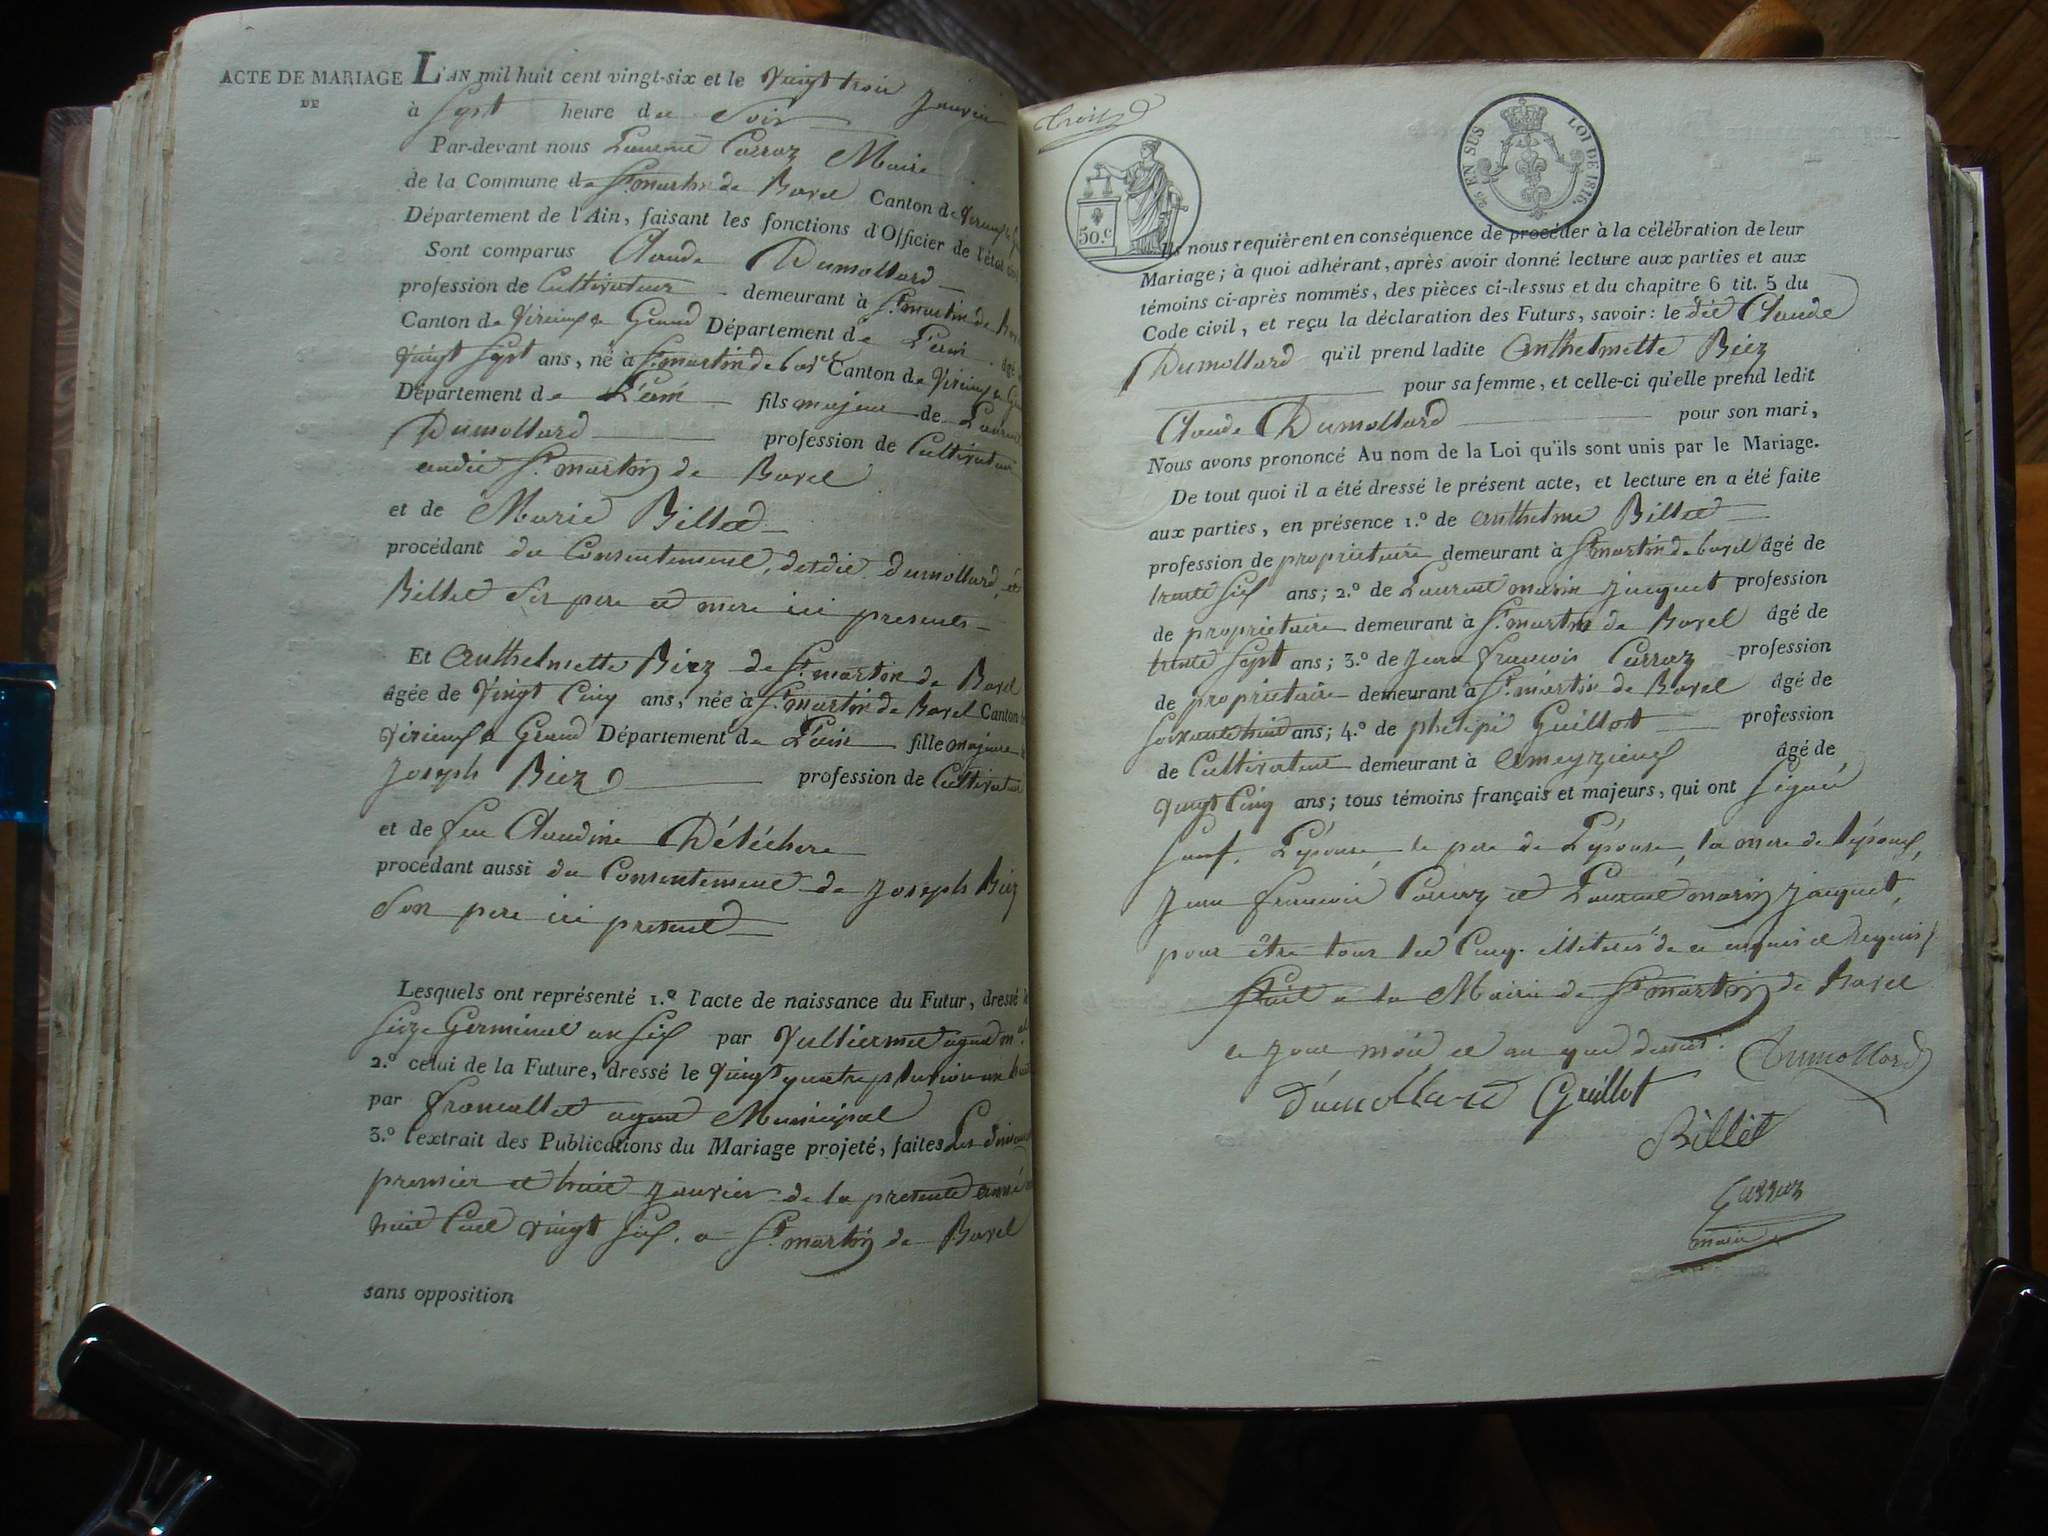 ACTE DE MARIAGE
DE
L'AN mil huit cent vingt-six et le vingt trois janvier
à Sept heure du Soir
Par-devant nous Laurent Carraz Maire
de la Commune de St. martin de Bavel Canton de Virieux le
Département de l'Ain, faisant les fonctions d'Officier de l'état
Sont comparus Claude Dumollard
profession de Cultivateur demeurant à St. martin de
Canton de Virieux le Grand Département de L'ain âgé
vingt Sept ans, né à St. martin de bavel Canton de Virieux le
Département de L'ain fils majeur de Laurent
Dumollard profession de Cultivateur
audit St. martin de Bavel
et de Marie Billet
procédant du Consentement, desdit dumollard, et
Billet Ses pere et mere ici presents
Et Anthelmette Biez de St. martin de Bavel
âgée de Vingt Cinq ans, née à St. martin de Bavel Canton
Virieux le Grand Département de L'ain fille majeure
Joseph Biez profession de Cultivateur
et de feu Claudine Détéchere
procédant aussi du Consentement de Joseph Biez
Son pere ici present
Lesquels ont représenté 1.º l'acte de naissance du Futur, dressé le
Seize Germinal an Six par Vulliermet agent m.al
2.º celui de la Future, dressé le Vingt quatre pluviose an huit
par francallet agent Municipal
3.º l'extrait des Publications du Mariage projeté, faites Les
premier et huit Janvier de la presente année
huit Cent vingt Six. a St. martin de Bavel
sans opposition
trois
50.c
2/6 EN SUS
LOI DE 1816.
Ils nous requièrent en conséquence de procéder à la célébration de leur
Mariage; à quoi adhérant, après avoir donné lecture aux parties et aux
témoins ci-après nommés, des pièces ci-dessus et du chapitre 6 tit. 5 du
Code civil, et reçu la déclaration des Futurs, savoir: le dit Claude
Dumollard qu'il prend ladite Anthelmette Biez
pour sa femme, et celle-ci qu'elle prend ledit
Claude Dumollard pour son mari,
Nous avons prononcé Au nom de la Loi qu'ils sont unis par le Mariage.
De tout quoi il a été dressé le présent acte, et lecture en a été faite
aux parties, en présence 1.º de Anthelme Billet
profession de proprietaire demeurant à St. martin de bavel âgé de
trente Six ans; 2.º de Laurent marin jacquet profession
de proprietaire demeurant à St. martin de Bavel âgé de
trente Sept ans; 3.º de Jean francois Carraz profession
de proprietaire demeurant à St. martin de Bavel âgé de
Soixante huit ans; 4.º de phelipi Guillot profession
de Cultivateur demeurant à ameyzieux âgé de
vingt Cinq ans; tous témoins français et majeurs, qui ont Signé
Sauf. L'épouse, le pere de L'épouse, la mere de l'époux,
Jean francois Carraz et Laurent marin jacquet,
pour être tous les Cinq. illiteres de ce enquis et requis
fait a la Mairie de St. martin de Bavel
le jour mois et an que dessus.
Dumollard
Dumollard Guillot
Billet
Carraz
maire